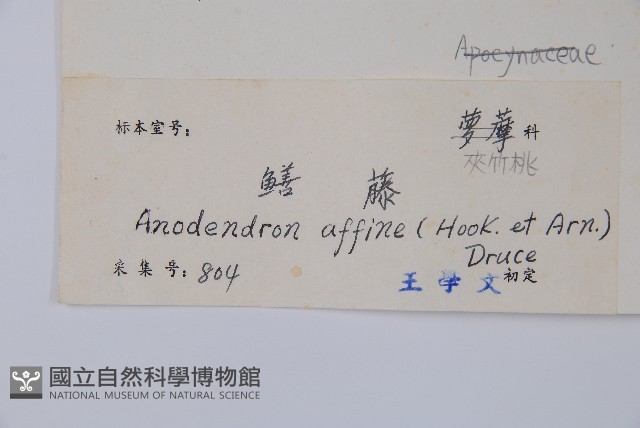 Apocynaceae
标本室号: 萝藦科
夹竹桃
鱔 藤
Anodendron affine (Hook. et Arn.)
Druce
采集号: 804 王学文初定
國立自然科學博物館
NATIONAL MUSEUM OF NATURAL SCIENCE